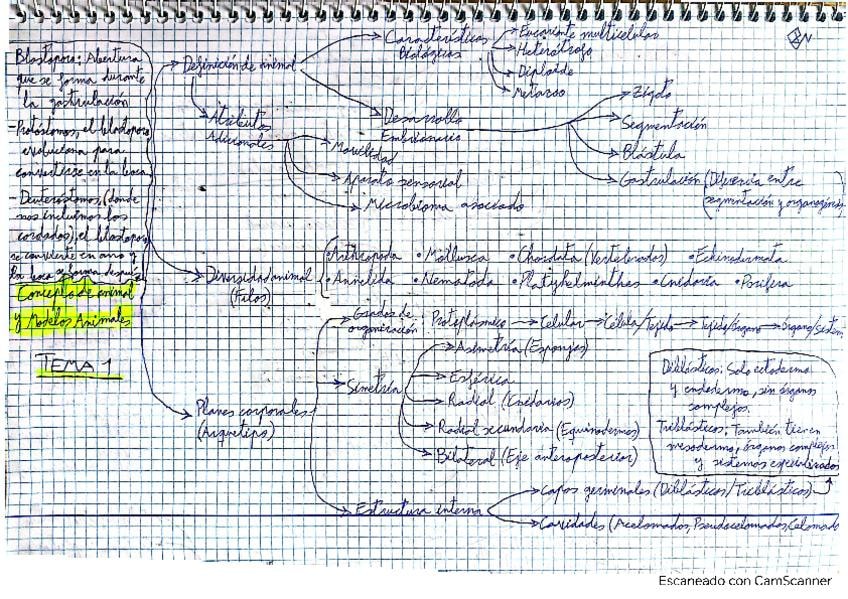 Blastoporo: Abertura
que se forma durante
la gastrulación
-Protóstomos, el blastoporo
evoluciona para
convertirse en la boca
- Deuteróstomos, (donde
nos incluimos los
cordados), el blastoporo
se convierte en ano y
la boca se forma después
Concepto de animal
y Modelos Animales
TEMA 1
Definición de animal
Características
Biológicas
Eucarionte multicelular
Heterótrofo
Diploide
Metazoo
Desarrollo
Embrionario
Zigoto
Segmentación
Blástula
Gastrulación (Diferencia entre
segmentación y organogénesis)
Atributos
Adicionales
Movilidad
Aparato sensorial
Microbioma asociado
Diversidad animal
(Filos)
•Arthropoda •Mollusca •Chordata (Vertebrados) •Echinodermata
•Annelida •Nematoda •Platyhelminthes •Cnidaria •Porifera
Planes corporales
(Arquetipo)
Grados de
organización: Protoplásmico → Celular → Célula/Tejido → Tejido/órgano → órgano/sistem
Simetría
Asimetría (Esponjas)
Esférica
Radial (Cnidarios)
Radial secundaria (Equinodermos)
Bilateral (Eje anteroposterior)
Diblásticos: Solo ectodermo
y endodermo, sin órganos
complejos.
Triblásticos: También tienen
mesodermo, órganos complejos
y sistemas especializados
Estructura interna
Capas germinales (Diblásticos/Triblásticos)
Cavidades (Acelomados, Pseudocelomados, Celomado
Escaneado con CamScanner